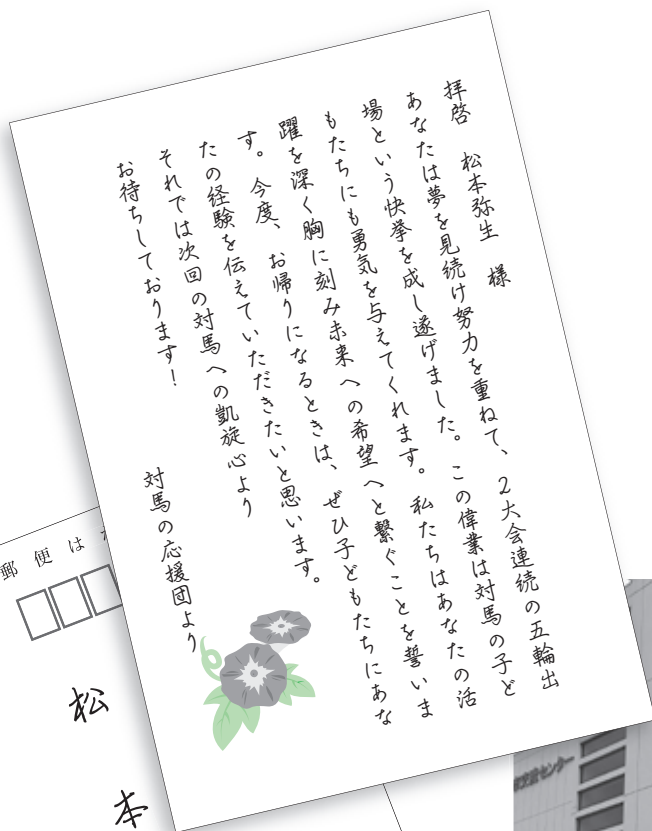 拝啓　松本弥生　様
あなたは夢を見続け努力を重ねて、２大会連続の五輪出
場という快挙を成し遂げました。この偉業は対馬の子ど
もたちにも勇気を与えてくれます。私たちはあなたの活
躍を深く胸に刻み未来への希望へと繋ぐことを誓いま
す。今度、お帰りになるときは、ぜひ子どもたちにあな
たの経験を伝えていただきたいと思います。
それでは次回の対馬への凱旋心より
お待ちしております！
対馬の応援団より
郵便は
松本
センター